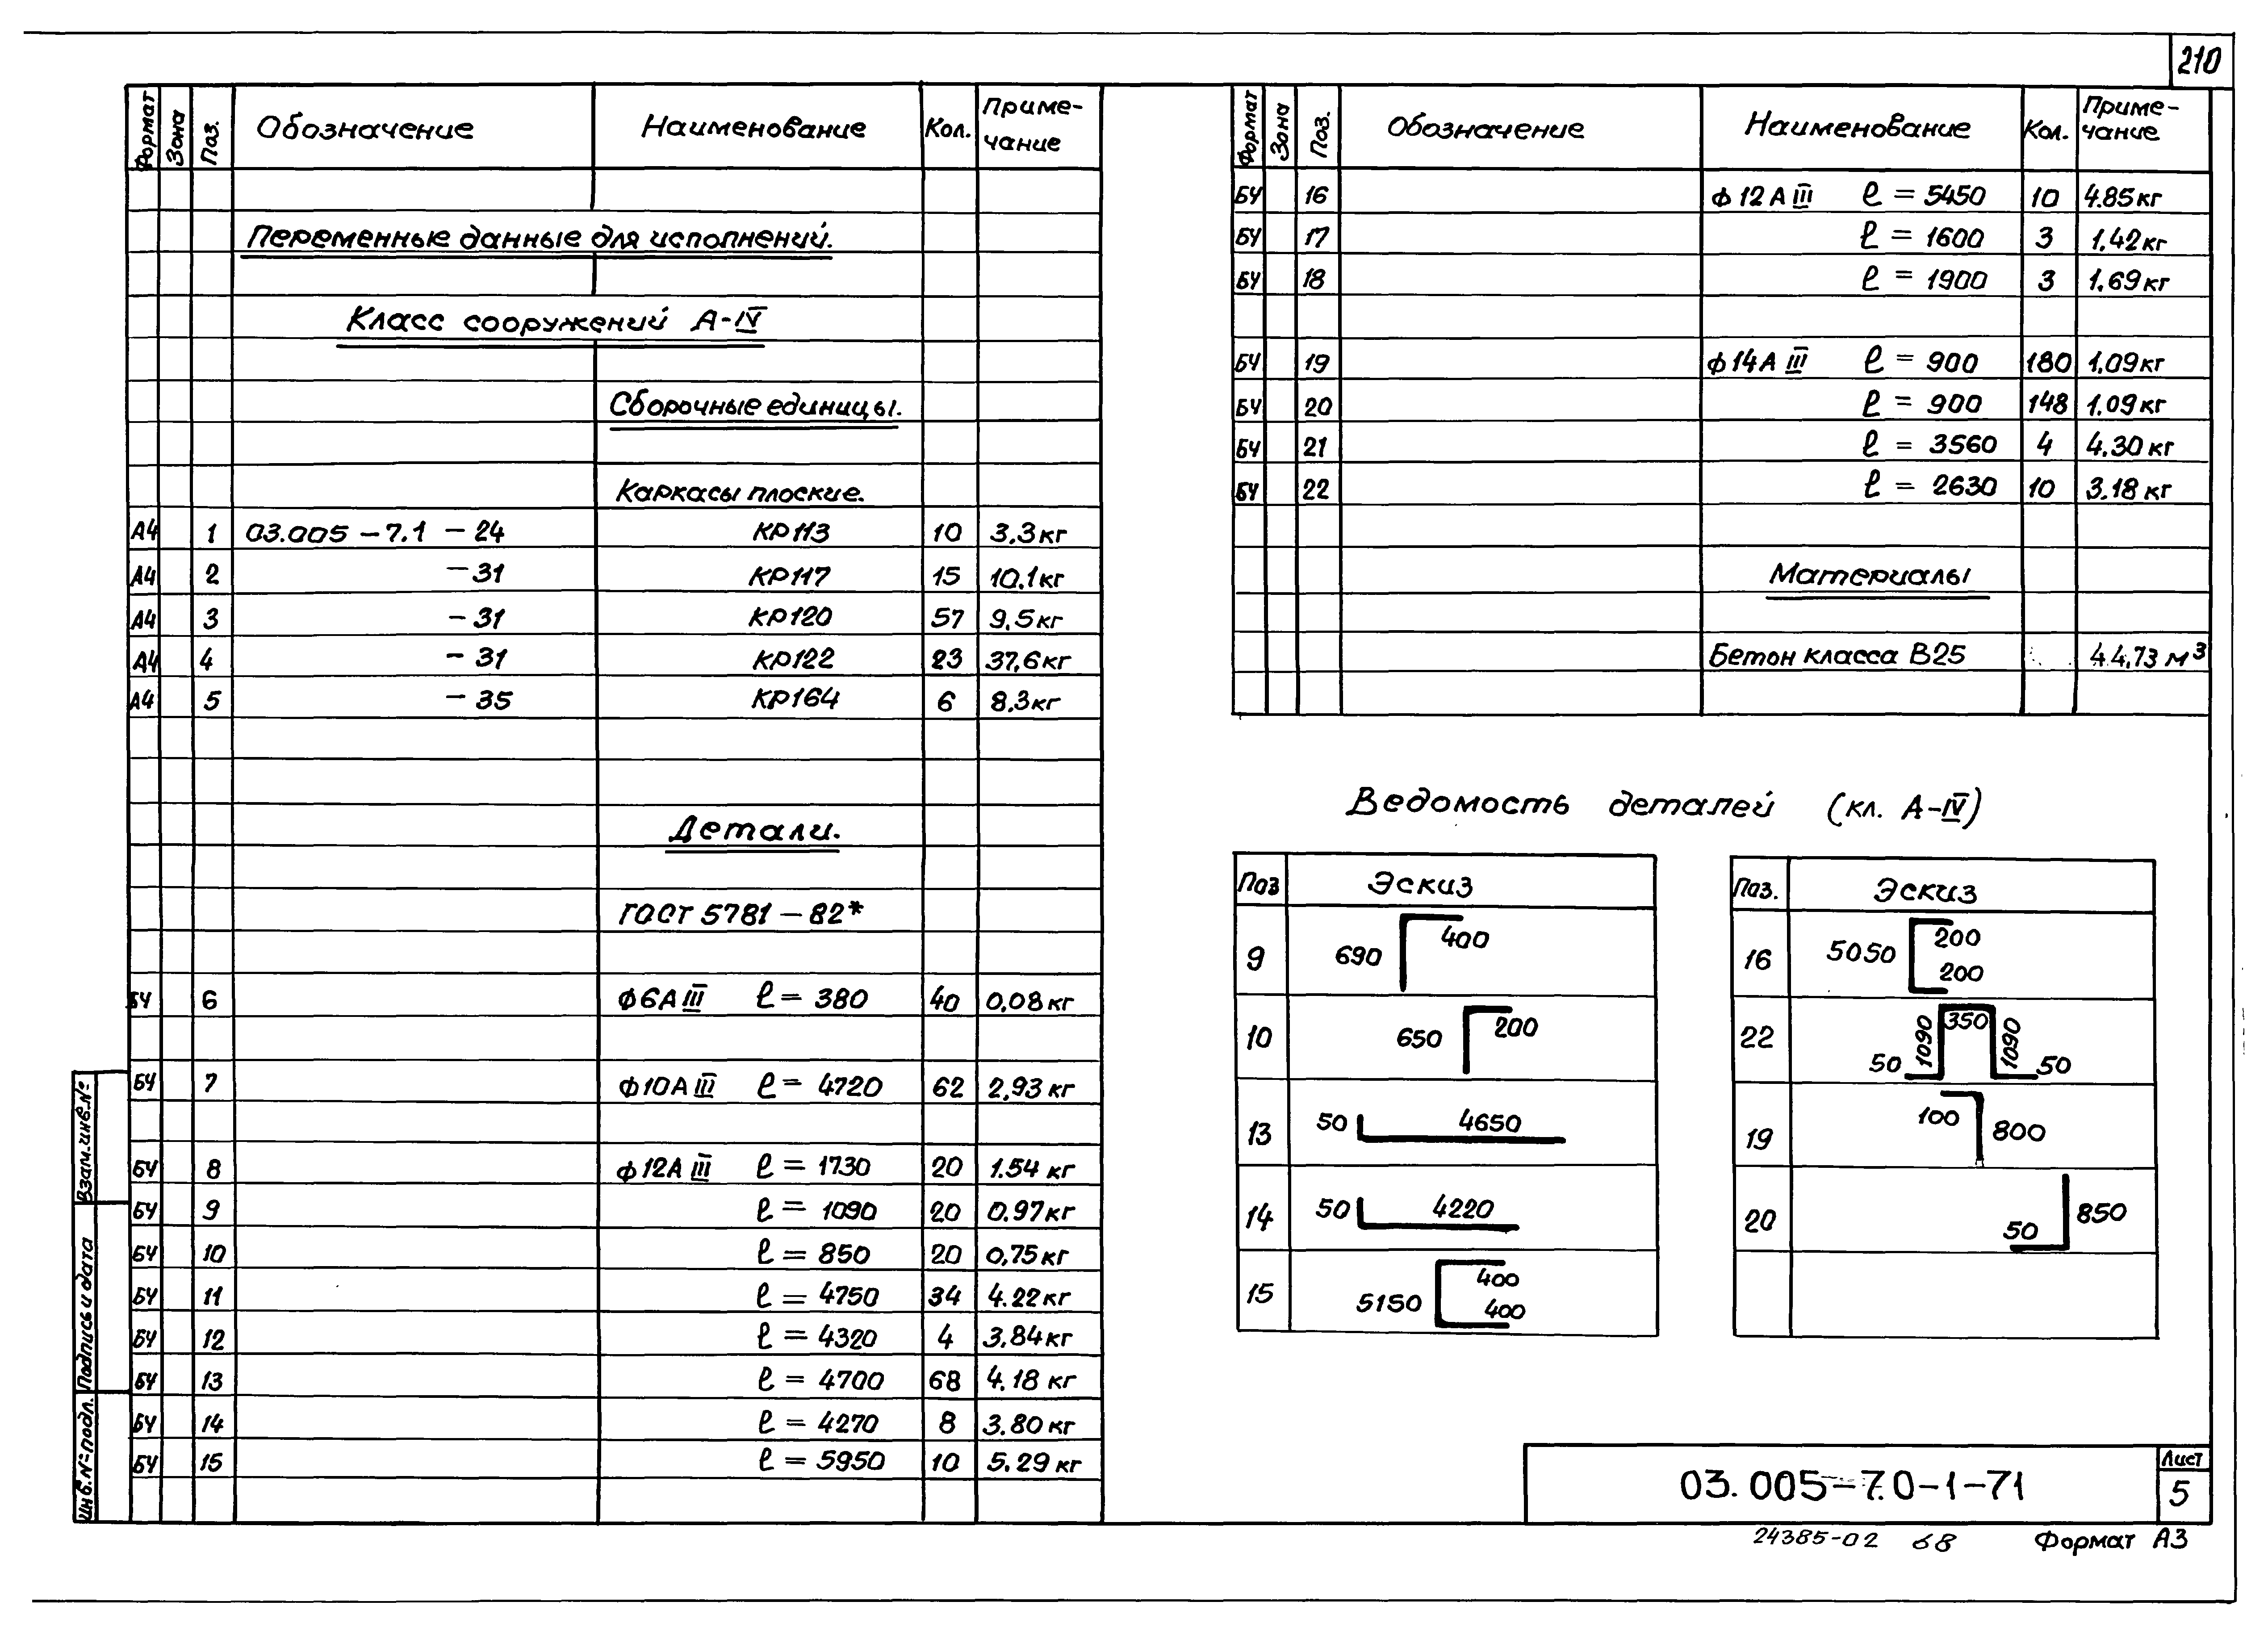 210
Формат Зона Поз. Обозначение Наименование Кол. Приме-чание
Переменные данные для исполнений.
Класс сооружений А-IV
Сборочные единицы.
Каркасы плоские.
А4 1 03.005-7.1 -24 КР113 10 3.3кг
А4 2 -31 КР117 15 10.1кг
А4 3 -31 КР120 57 9.5кг
А4 4 -31 КР122 23 37.6кг
А4 5 -35 КР164 6 8.3кг
Детали.
ГОСТ 5781-82*
БЧ 6 ф6АIII ℓ=380 40 0,08кг
БЧ 7 ф10АIII ℓ=4720 62 2,93кг
БЧ 8 ф12АIII ℓ=1730 20 1.54кг
БЧ 9 ℓ=1090 20 0.97кг
БЧ 10 ℓ=850 20 0,75кг
БЧ 11 ℓ=4750 34 4.22кг
БЧ 12 ℓ=4320 4 3,84кг
БЧ 13 ℓ=4700 68 4.18кг
БЧ 14 ℓ=4270 8 3.80кг
БЧ 15 ℓ=5950 10 5.29кг
Формат Зона Поз. Обозначение Наименование Кол. Приме-чание
БЧ 16 ф12АIII ℓ=5450 10 4.85кг
БЧ 17 ℓ=1600 3 1.42кг
БЧ 18 ℓ=1900 3 1.69кг
БЧ 19 ф14АIII ℓ=900 180 1.09кг
БЧ 20 ℓ=900 148 1.09кг
БЧ 21 ℓ=3560 4 4.30кг
БЧ 22 ℓ=2630 10 3.18кг
Материалы
Бетон класса В25 44.73 м³
Ведомость деталей (кл. А-IV)
Поз Эскиз
9 690 400
10 650 200
13 50 4650
14 50 4220
15 5150 400 400
Поз. Эскиз
16 5050 200 200
22 50 1090 350 1090 50
19 100 800
20 50 850
Взам.инв.№
Подпись и дата
Инв.№подл.
03.005-7.0-1-71
Лист
5
24385-02 68 Формат А3